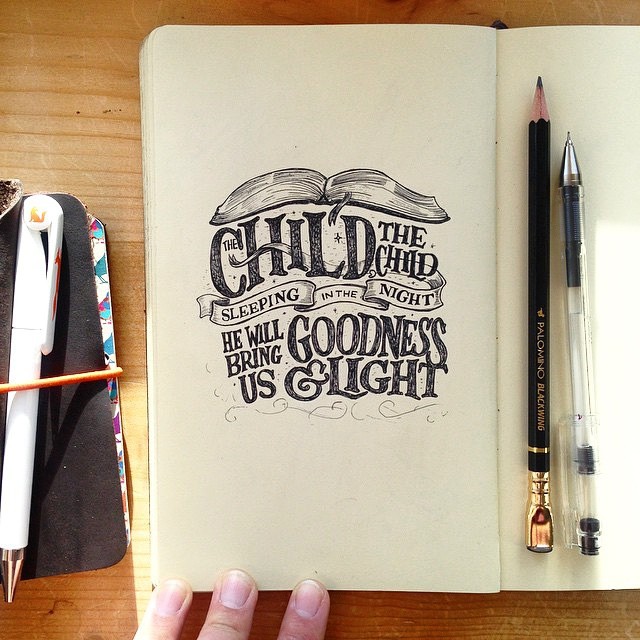 THE CHILD THE CHILD
SLEEPING IN THE NIGHT
HE WILL BRING US GOODNESS & LIGHT
PALOMINO BLACKWING